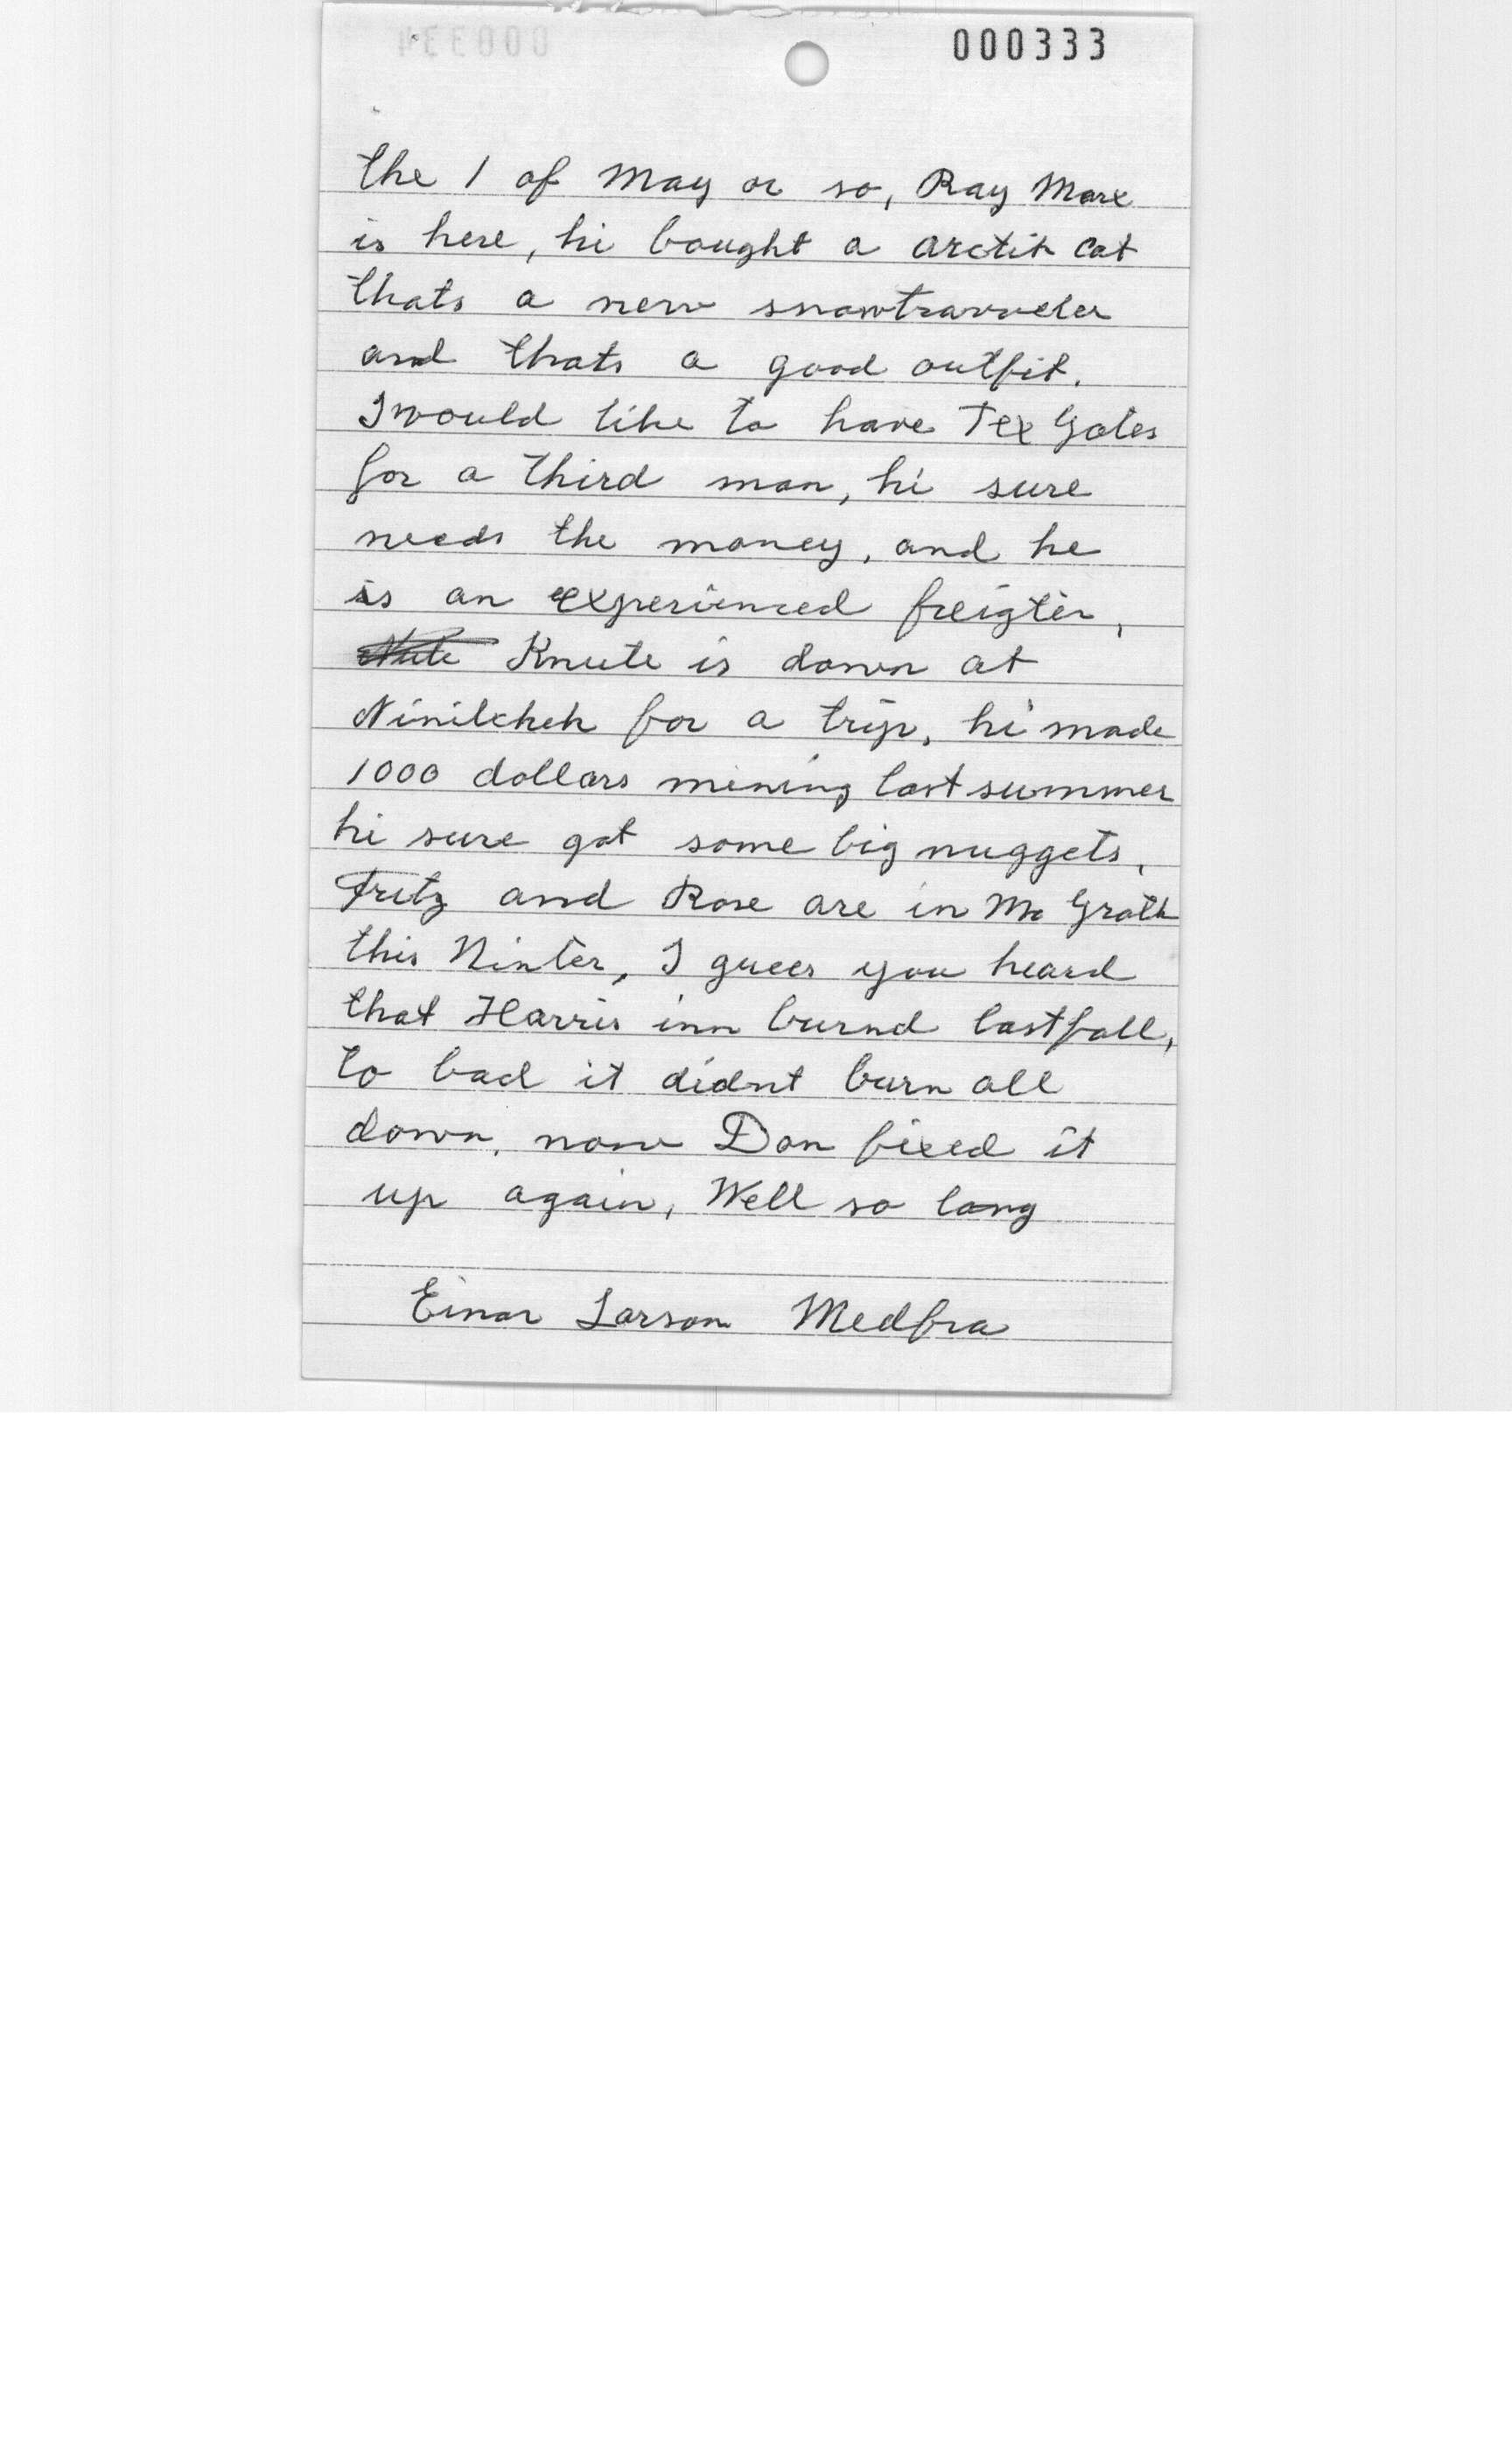 000333
the 1 of May or so, Ray Marx
is here, hi bought a arctik cat
thats a new snowtravveler
and thats a good outfit.
I would like to have Tex Gates
for a third man, hi sure
needs the money, and he
is an experienced freigter,
Nute Knute is down at
Ninilchek for a trip, hi made
1000 dollars mining last summer
hi sure got some big nuggets,
Fritz and Rose are in Mc Grath
this Winter, I guees you heard
that Harris inn burnd last fall,
to bad it didnt burn all
down, now Don fixed it
up again, Well so long
Einar Larson Medfra